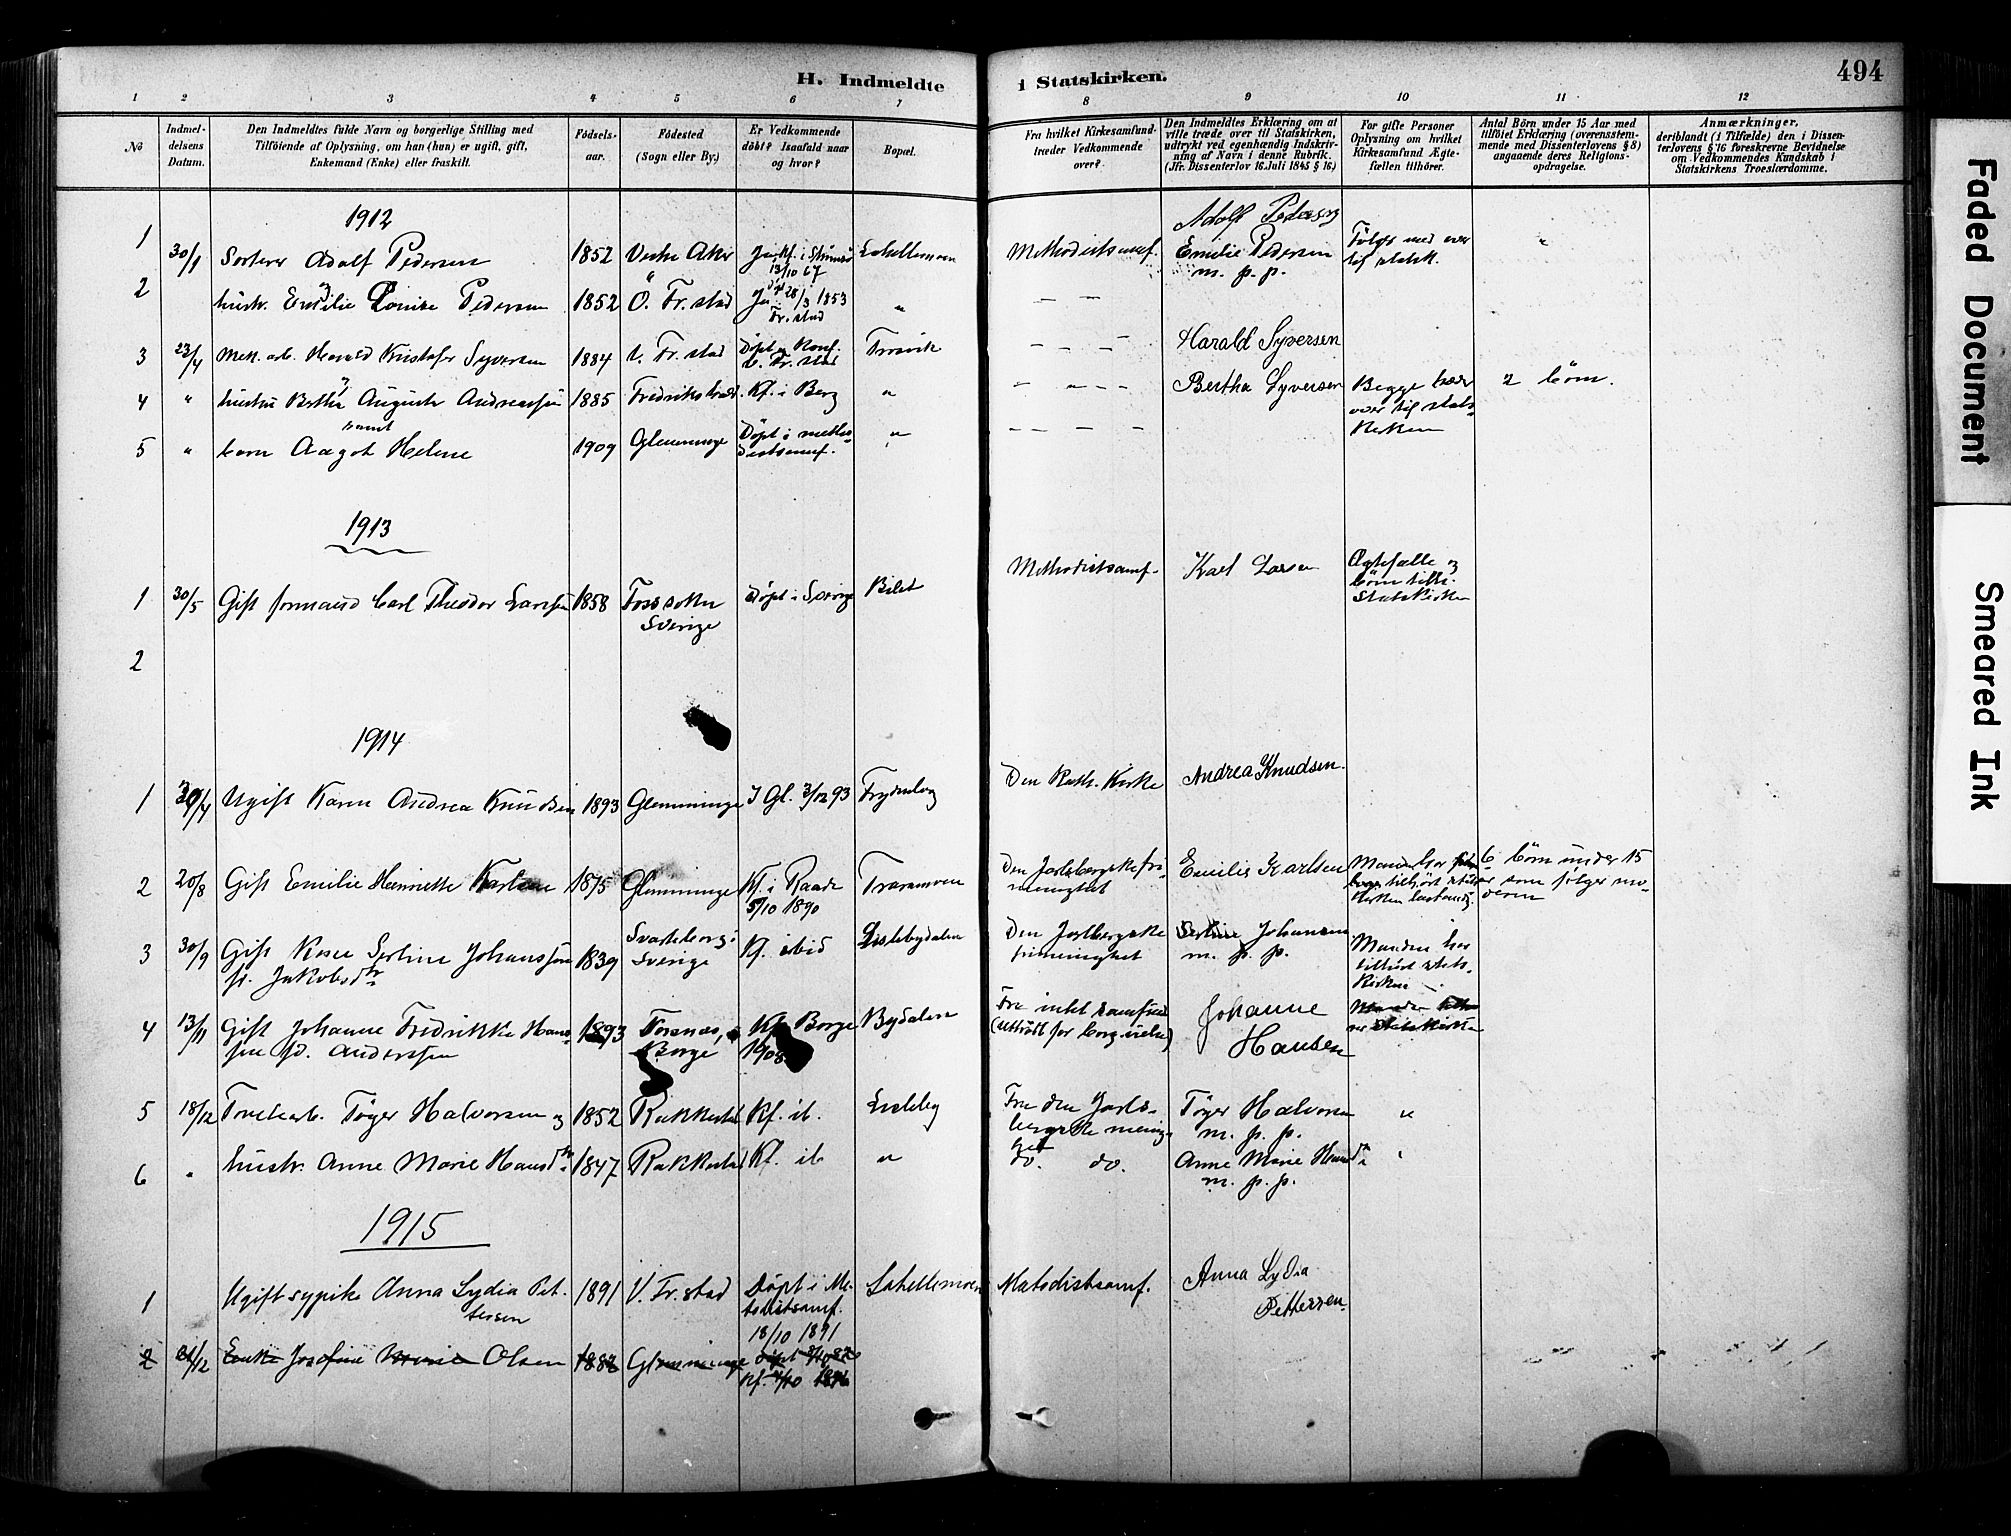 H. Indmeldte i Statskirken. 494
1 2 3 4 5 6 7 8 9 10 11 12
№
Indmel-
delsens
Datum.
Den Indmeldtes fulde Navn og borgerlige Stilling med
Tilföiende af Oplysning, om han (hun) er ugift, gift,
Enkemand (Enke) eller fraskilt.
Födsels-
aar.
Födested
(Sogn eller By.)
Er Vedkommende
döbt? Isaafald naar
og hvor?
Bopæl.
Fra hvilket Kirkesamfund
træder Vedkommende
over?
Den Indmeldtes Erklæring om at
ville træde over til Statskirken,
udtrykt ved egenhændig Indskriv-
ning af Navn i denne Rubrik.
(Jfr. Dissenterlov 16 Juli 1845 § 16)
For gifte Personer
Oplysning om hvilket
Kirkesamfund Ægte-
fællen tilhörer.
Antal Börn under 15 Aar med
tilföiet Erklæring (overensstem-
mende med Dissenterlovens § 8)
angaaende deres Religions-
opdragelse.
Anmærkninger,
deriblandt (i Tilfælde) den i Dissen-
terlovens § 16 foreskrevne Bevidnelse
om Vedkommendes Kundskab i
Statskirkens Troeslærdomme.
1912
1 30/1 Sorterer Adolf Pedersen 1852 Vestre Aker 13/10 67 Methodistsamf. Adolf Pedersen
Emilie Pedersen
m. p. p.
Følges med over
til statsk.
2 hustr. Emilie Louise Pedersen 1852 Ö. Fr. stad Ja 28/3 1853
Fr. stad "
3 23/4 Mek. arb. Harald Kristofer Syversen 1884 V. Fr. stad Døpt og Konf.
V. Fr. stad Trosvik Harald Syversen
4 " hustru Bertha Auguste Andreassen 1885 Fredrikshald Kf. i Berg " Bertha Syversen Begge træder
over til stats-
kirken 2 børn.
samt
5 " barn Aagot Helene 1909 Glemminge Døpt i metho-
distsamf. "
1913
1 30/5 Gift formand Carl Theodor Larssen 1858 Foss sokn
Sverige Døpt i Sverige Bilet Methodistsamf. Karl Larsen Ægtefælle og
børn tilh.
Statskirken
2
1914
1 30/4 Ugift Karen Andrea Knudsen 1893 Glemminge I Gl. 3/12 93 Frydenlog Den Kath. Kirke Andrea Knudsen.
2 20/8 Gift Emilie Henriette Karlsen 1875 Glemminge Kf. i Raade
5/10 1890 Traramoen Den Jarlsbergske fri-
menighet Emilie Karlsen 6 børn under 15
år som følger mo-
deren
3 30/9 Gift Serline Johanssen
f. Jakobsdtr 1839 Svarteborg i
Sverige Kf. ibid Lislebydalen Den Jarlbergske
frimenighet Serline Johansen
m. p. p. Manden har
tilhørt stats-
kirken
4 13/11 Gift Johanne Fredrikke Hans-
sen fd. Anderssen 1893 Torsnes,
Borge Kf. Borge
1908 Bydalen Fra intet samfund
(Uttrådt for borg. vielse) Johanne
Hansen
5 18/12 Tøger Halvorsen og 1852 Rakkestad Kf. ib. Lisleby Fra den Jarls-
bergske menig-
het Tøger Halvorsen
m. p. p. "
6 " hustr. Anne Marie Hansdtr 1847 Rakkestad Kf. ib " do. do. Anne Marie Hansdtr
m. p. p. "
1915
1 Ugift sypike Anna Lydia Pet-
tersen 1891 V. Fr. stad Døpt i Me-
todistsamf.
18/10 1891 Metodistsamf. Anna Lydia
Pettersen.
2 21/12 Enke Josefine Marie Olsen 1882 Glemminge
Faded Document
Smeared Ink